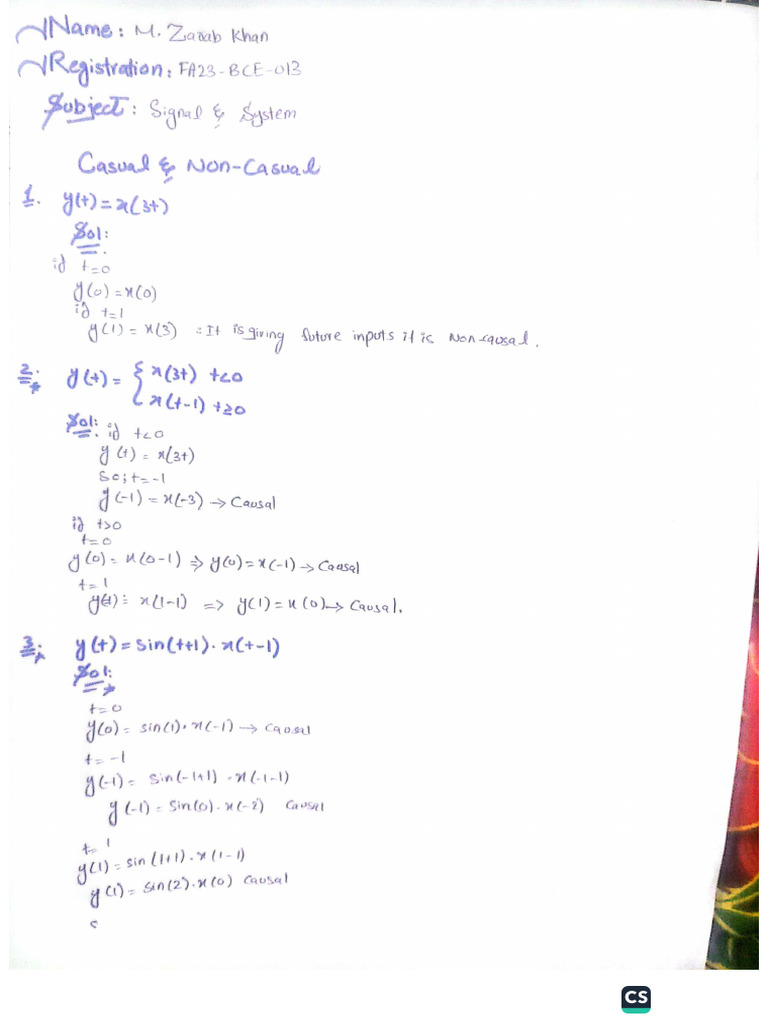 Name: M. Zarab Khan
Registration: FA23-BCE-013
Subject: Signal & System
Casual & Non-Casual
1. y(t) = x(3t)
Sol:
if t=0
y(0) = x(0)
if t=1
y(1) = x(3) : It is giving future inputs it is Non-causal.
2. y(t) = { x(3t) t<0
x(t-1) t≥0
Sol: if t<0
y(t) = x(3t)
So; t=-1
y(-1) = x(-3) → Causal
if t>0
t=0
y(0) = x(0-1) ⇒ y(0) = x(-1) → Causal
t=1
y(1) = x(1-1) => y(1) = x(0) → Causal.
3. y(t) = sin(t+1). x(t-1)
Sol:
t=0
y(0) = sin(1). x(-1) → Causal
t=-1
y(-1) = sin(-1+1) . x(-1-1)
y(-1) = sin(0). x(-2) Causal
t=1
y(1) = sin(1+1). x(1-1)
y(1) = sin(2). x(0) Causal
CS